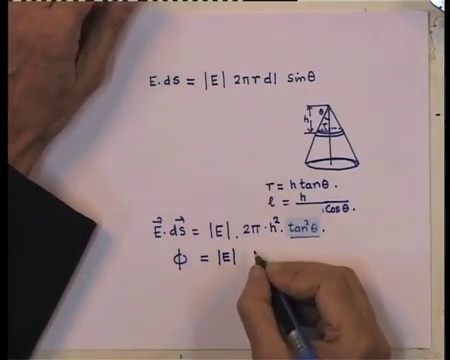 E.ds = |E| 2πrdl sinθ
θ
h
r
r = h tanθ.
l = h / cosθ.
E⃗.ds⃗ = |E|. 2π·h². tan²θ.
ϕ = |E|